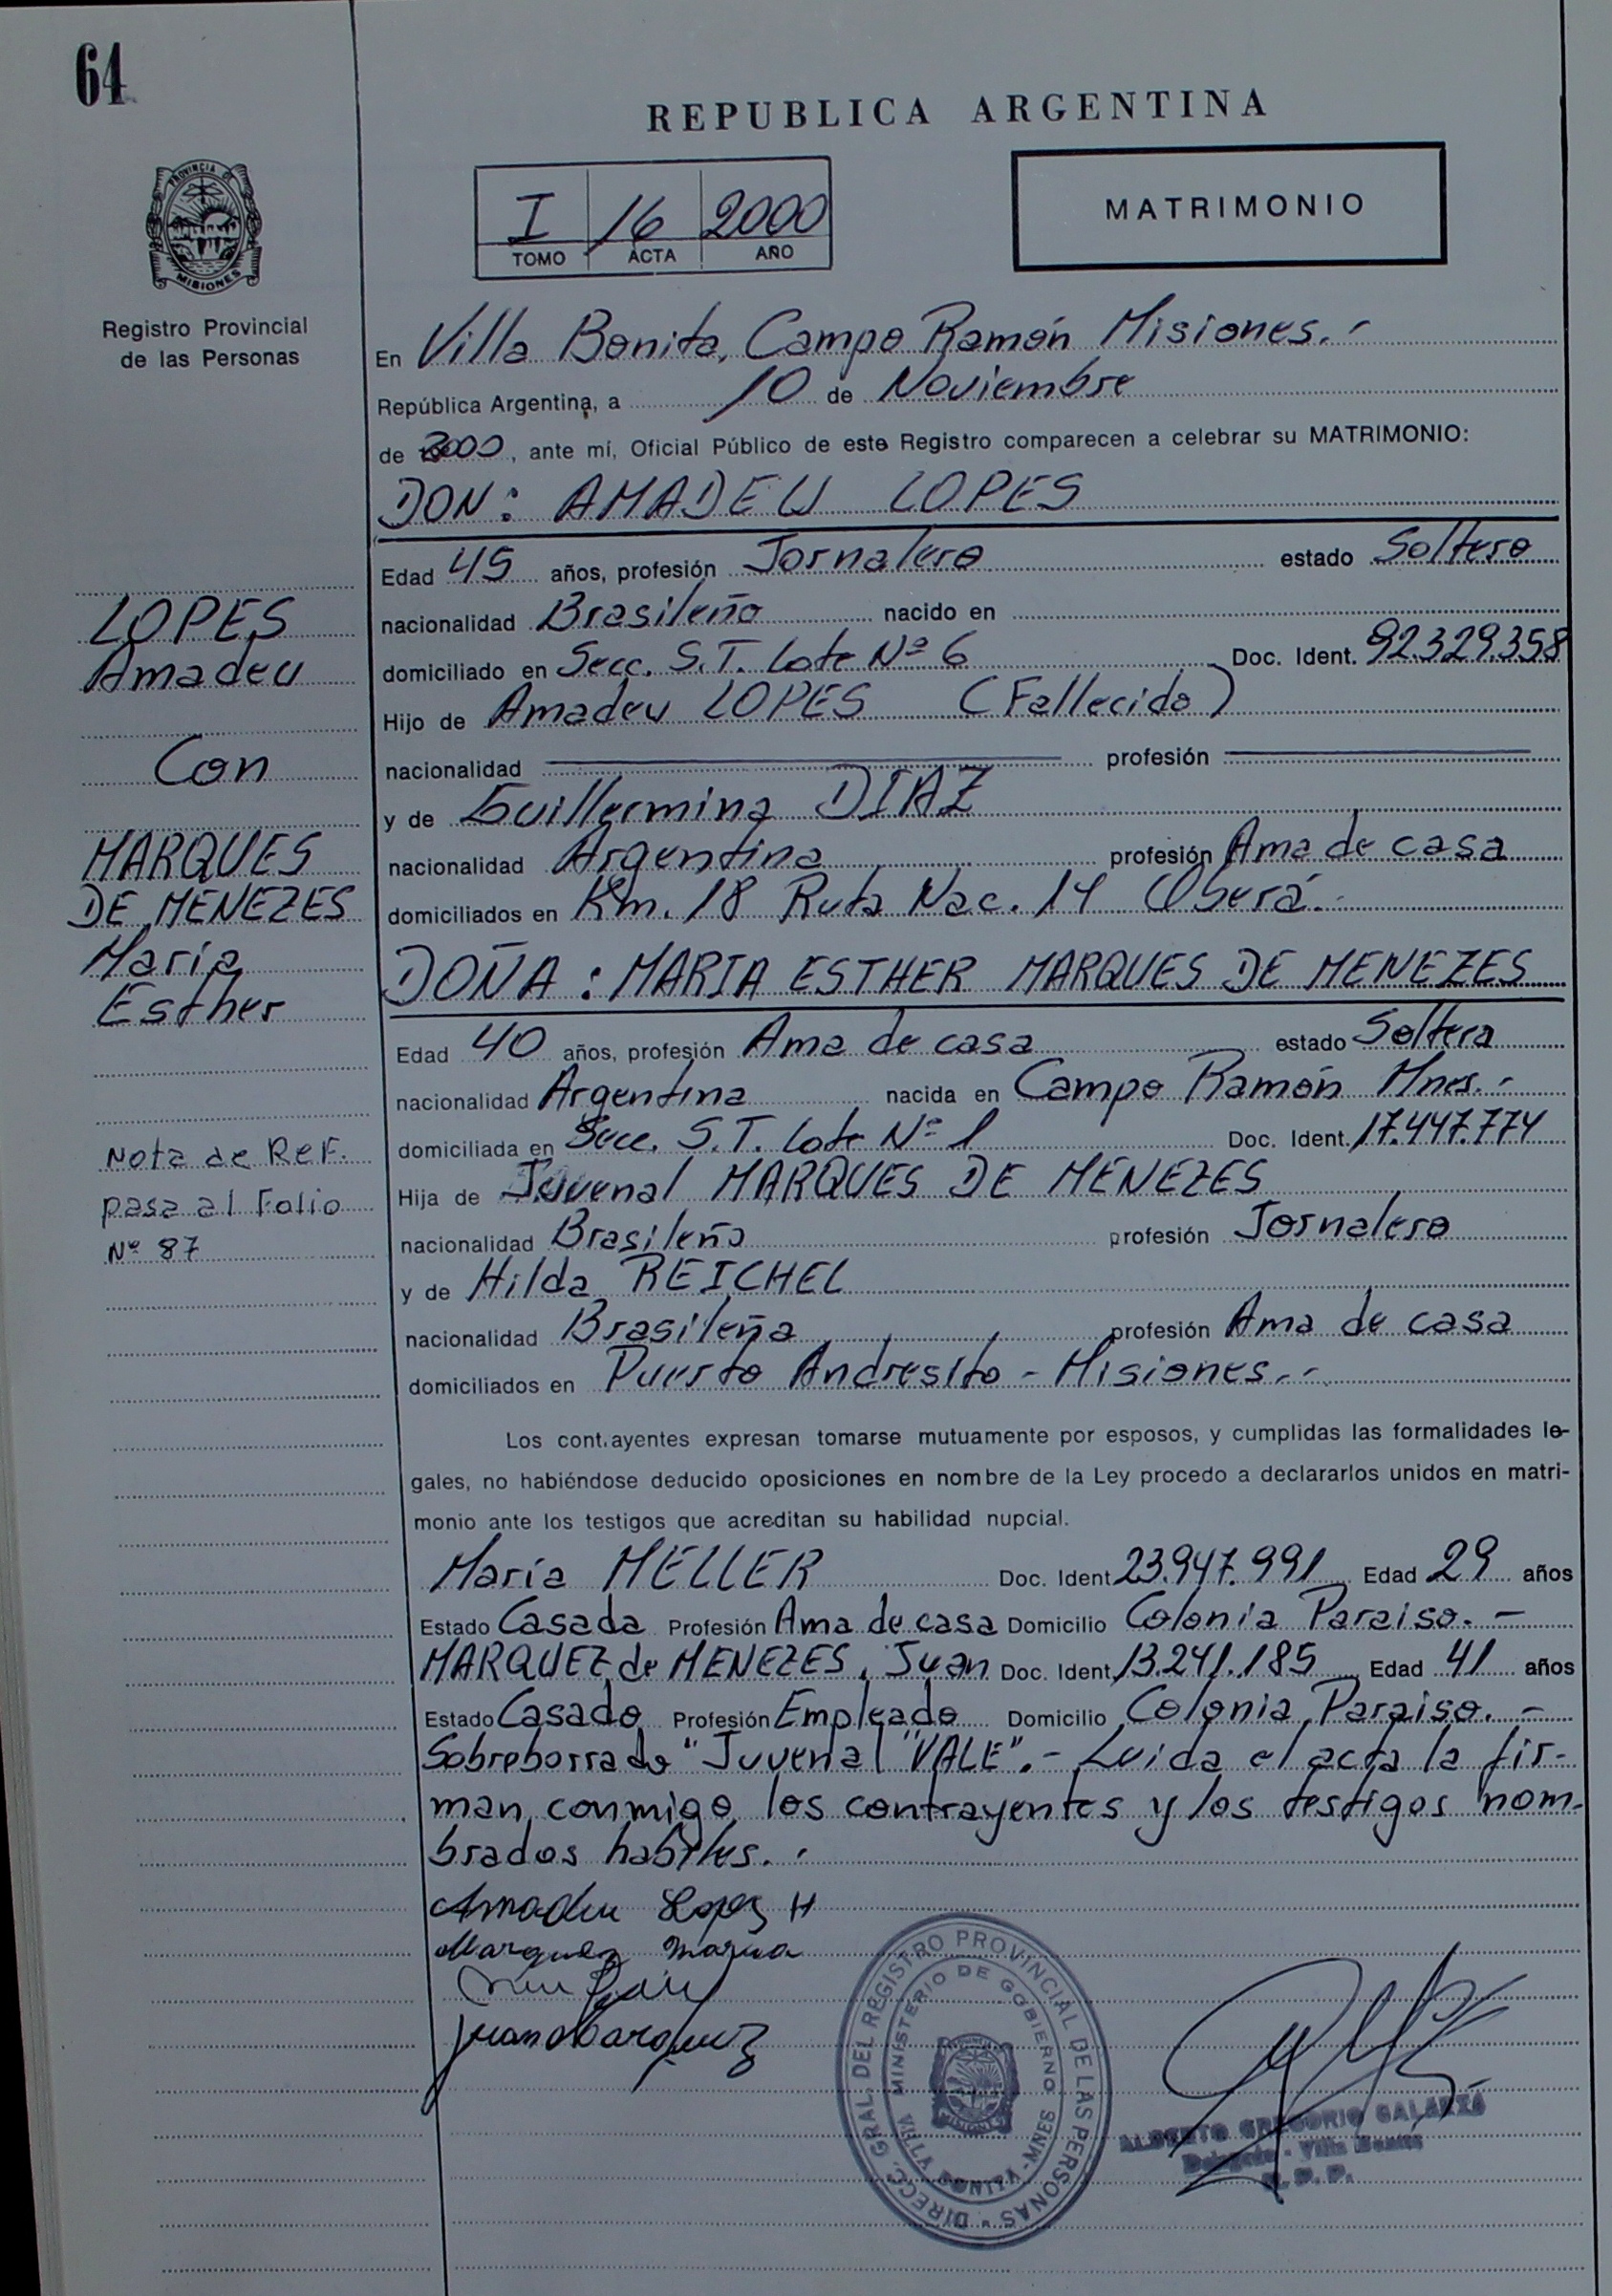 64
REPUBLICA ARGENTINA
PROVINCIA DE
MISIONES
I 16 2000
TOMO ACTA AÑO
MATRIMONIO
Registro Provincial
de las Personas
En Villa Bonita, Campo Ramón Misiones.-
República Argentina, a 10 de Noviembre
de 2000, ante mí, Oficial Público de este Registro comparecen a celebrar su MATRIMONIO:
DON: AMADEU LOPES
Edad 45 años, profesión Jornalero estado Soltero
nacionalidad Brasileño nacido en
domiciliado en Secc. S.T. Lote Nº 6 Doc. Ident. 92.329.358
Hijo de Amadeu LOPES (Fallecido)
nacionalidad profesión
y de Guillermina DIAZ
nacionalidad Argentina profesión Ama de casa
domiciliados en Km. 18 Ruta Nac. 14 Oberá.-
DOÑA: MARIA ESTHER MARQUES DE MENEZES
Edad 40 años, profesión Ama de casa estado Soltera
nacionalidad Argentina nacida en Campo Ramón Mnes.-
domiciliada en Secc. S.T. Lote Nº 1 Doc. Ident. 17.447.774
Hija de Juvenal MARQUES DE MENEZES
nacionalidad Brasileño profesión Jornalero
y de Hilda REICHEL
nacionalidad Brasileña profesión Ama de casa
domiciliados en Puerto Andresito - Misiones.-
LOPES
Amadeu
Con
MARQUES
DE MENEZES
María
Esther
Nota de Ref.
pasa al Folio
Nº 87
Los cont.ayentes expresan tomarse mutuamente por esposos, y cumplidas las formalidades le-
gales, no habiéndose deducido oposiciones en nombre de la Ley procedo a declararlos unidos en matri-
monio ante los testigos que acreditan su habilidad nupcial.
María MELLER Doc. Ident 23.947.991 Edad 29 años
Estado Casada Profesión Ama de casa Domicilio Colonia Paraiso.-
MARQUEZ de MENEZES, Juan Doc. Ident. 13.241.185 Edad 41 años
Estado Casado Profesión Empleado Domicilio Colonia Paraiso.-
Sobreborrado "Juvenal "VALE".- Leida el acta la fir-
man conmigo los contrayentes y los testigos nom-
brados habiles.-
Amadeu Lopes H
Marquez Maria
Juan Marquez
DIRECC. GRAL. DEL REGISTRO PROVINCIAL DE LAS PERSONAS
MINISTERIO DE GOBIERNO
VILLA BONITA - MNES
MISIONES
ALBERTO GREGORIO GALARZA
Delegado - Villa Bonita
R. P. P.